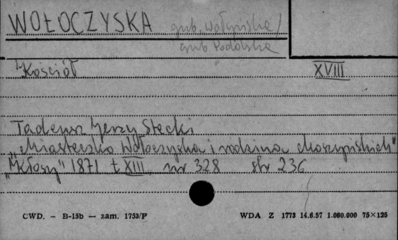 WOŁOCZYSKA gub. wołyńska/
gub. Podolska
1. Kościół XVIII
Tadeusz Jerzy Stecki
„Miasteczko Wołoczyska i rodzina Moszyńskich"
„Kłosy" 1871 t XIII nr 328 str 236
CWD. — B-15b — zam. 1753/P WDA Z 1773 14.6.57 1.000.000 75×125